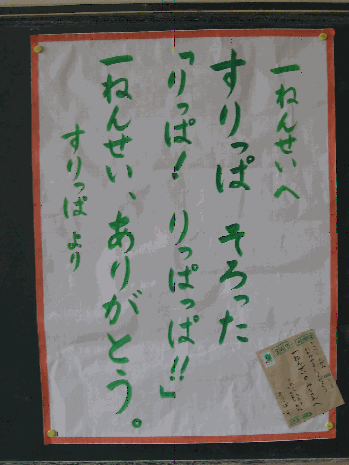 一ねんせいへ
すりっぱ そろった
「りっぱ! りっぱっぱ!!」
一ねんせい、ありがとう。
すりっぱ より